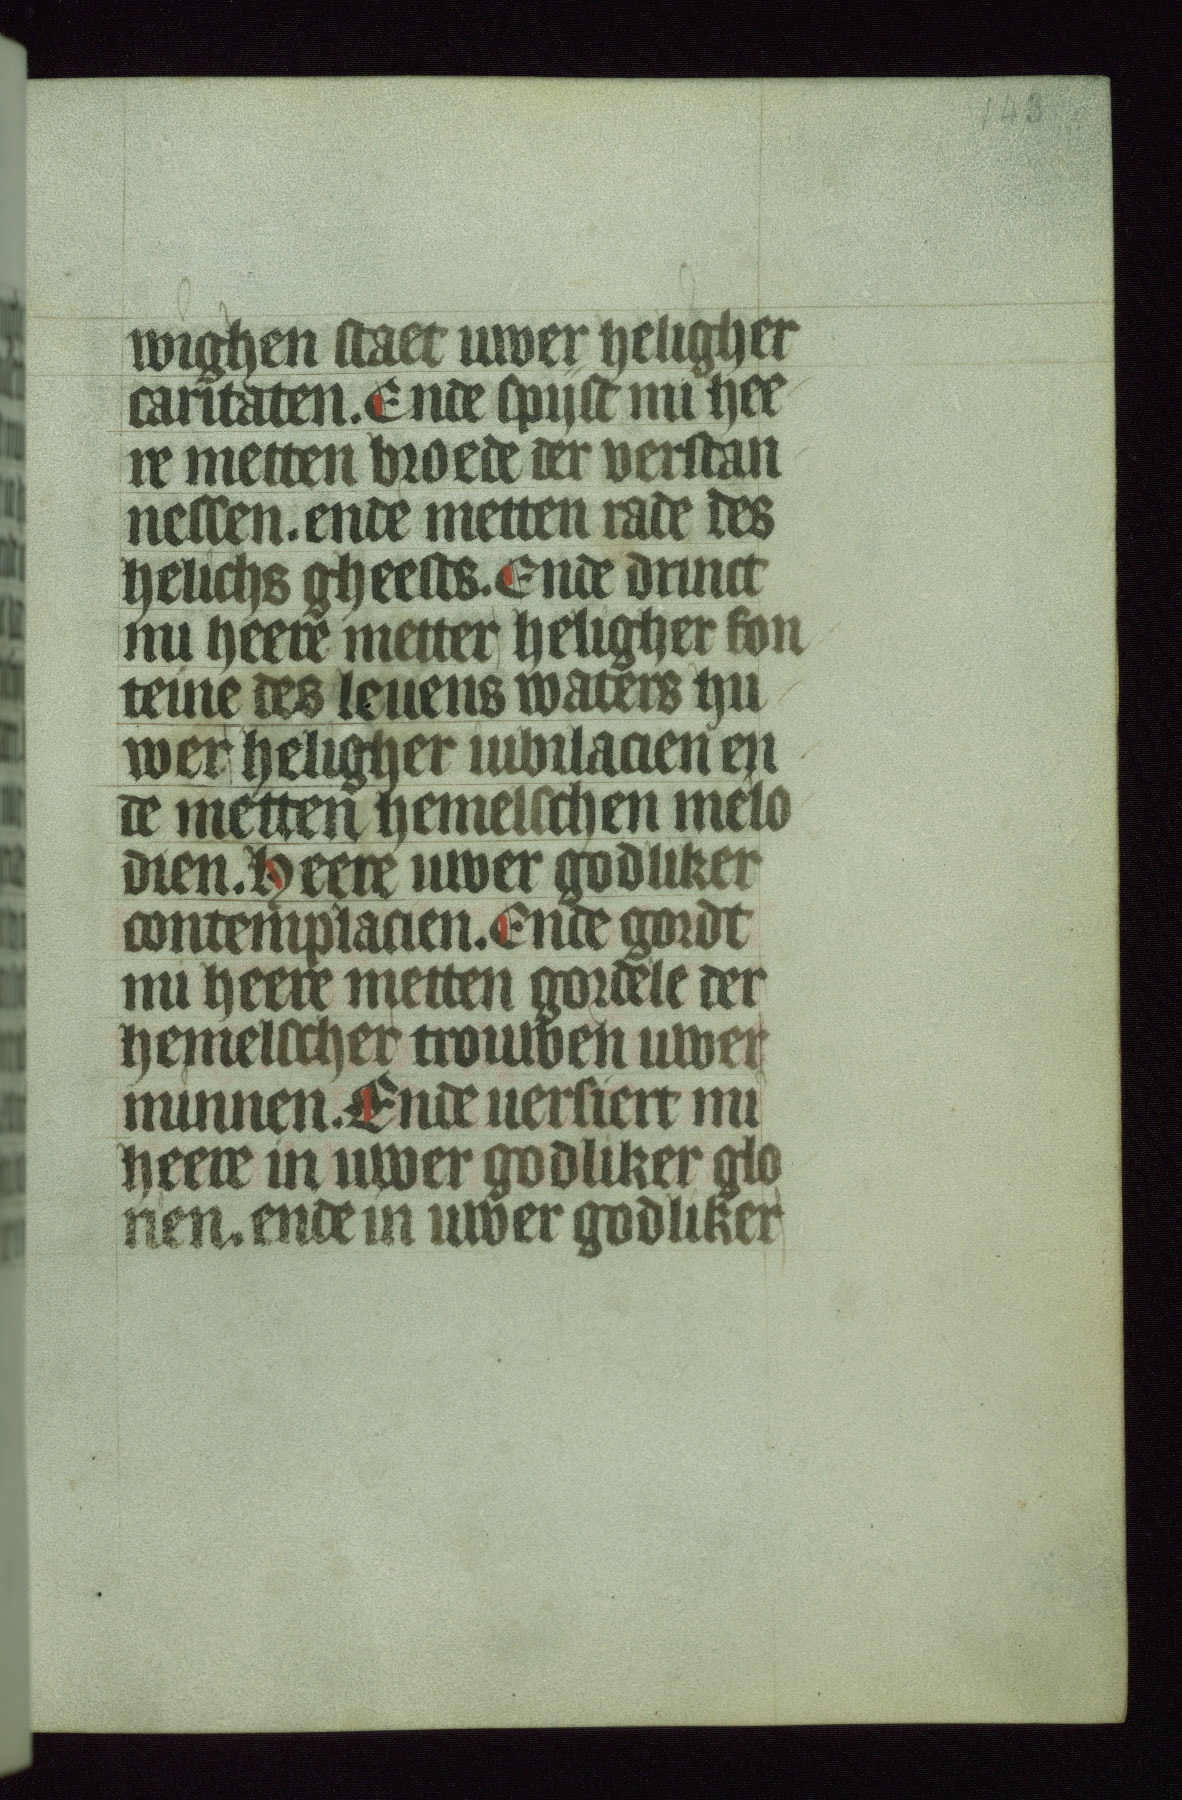 143
wighen staet uwer heligher
caritaten. Ende spijst mi hee
re metten broede der verstan
nessen. ende metten rade des
helichs gheests. Ende drinct
mi heere metter heligher fon
teine des leuens waters hu
wer heligher iubilacien en
de metten hemelschen melo
dien. Heere uwer godliker
contemplacien. Ende gordt
mi heere metten gordele der
hemelscher trouwen uwer
minnen. Ende uersiert mi
heere in uwer godliker glo
rien. ende in uwer godliker